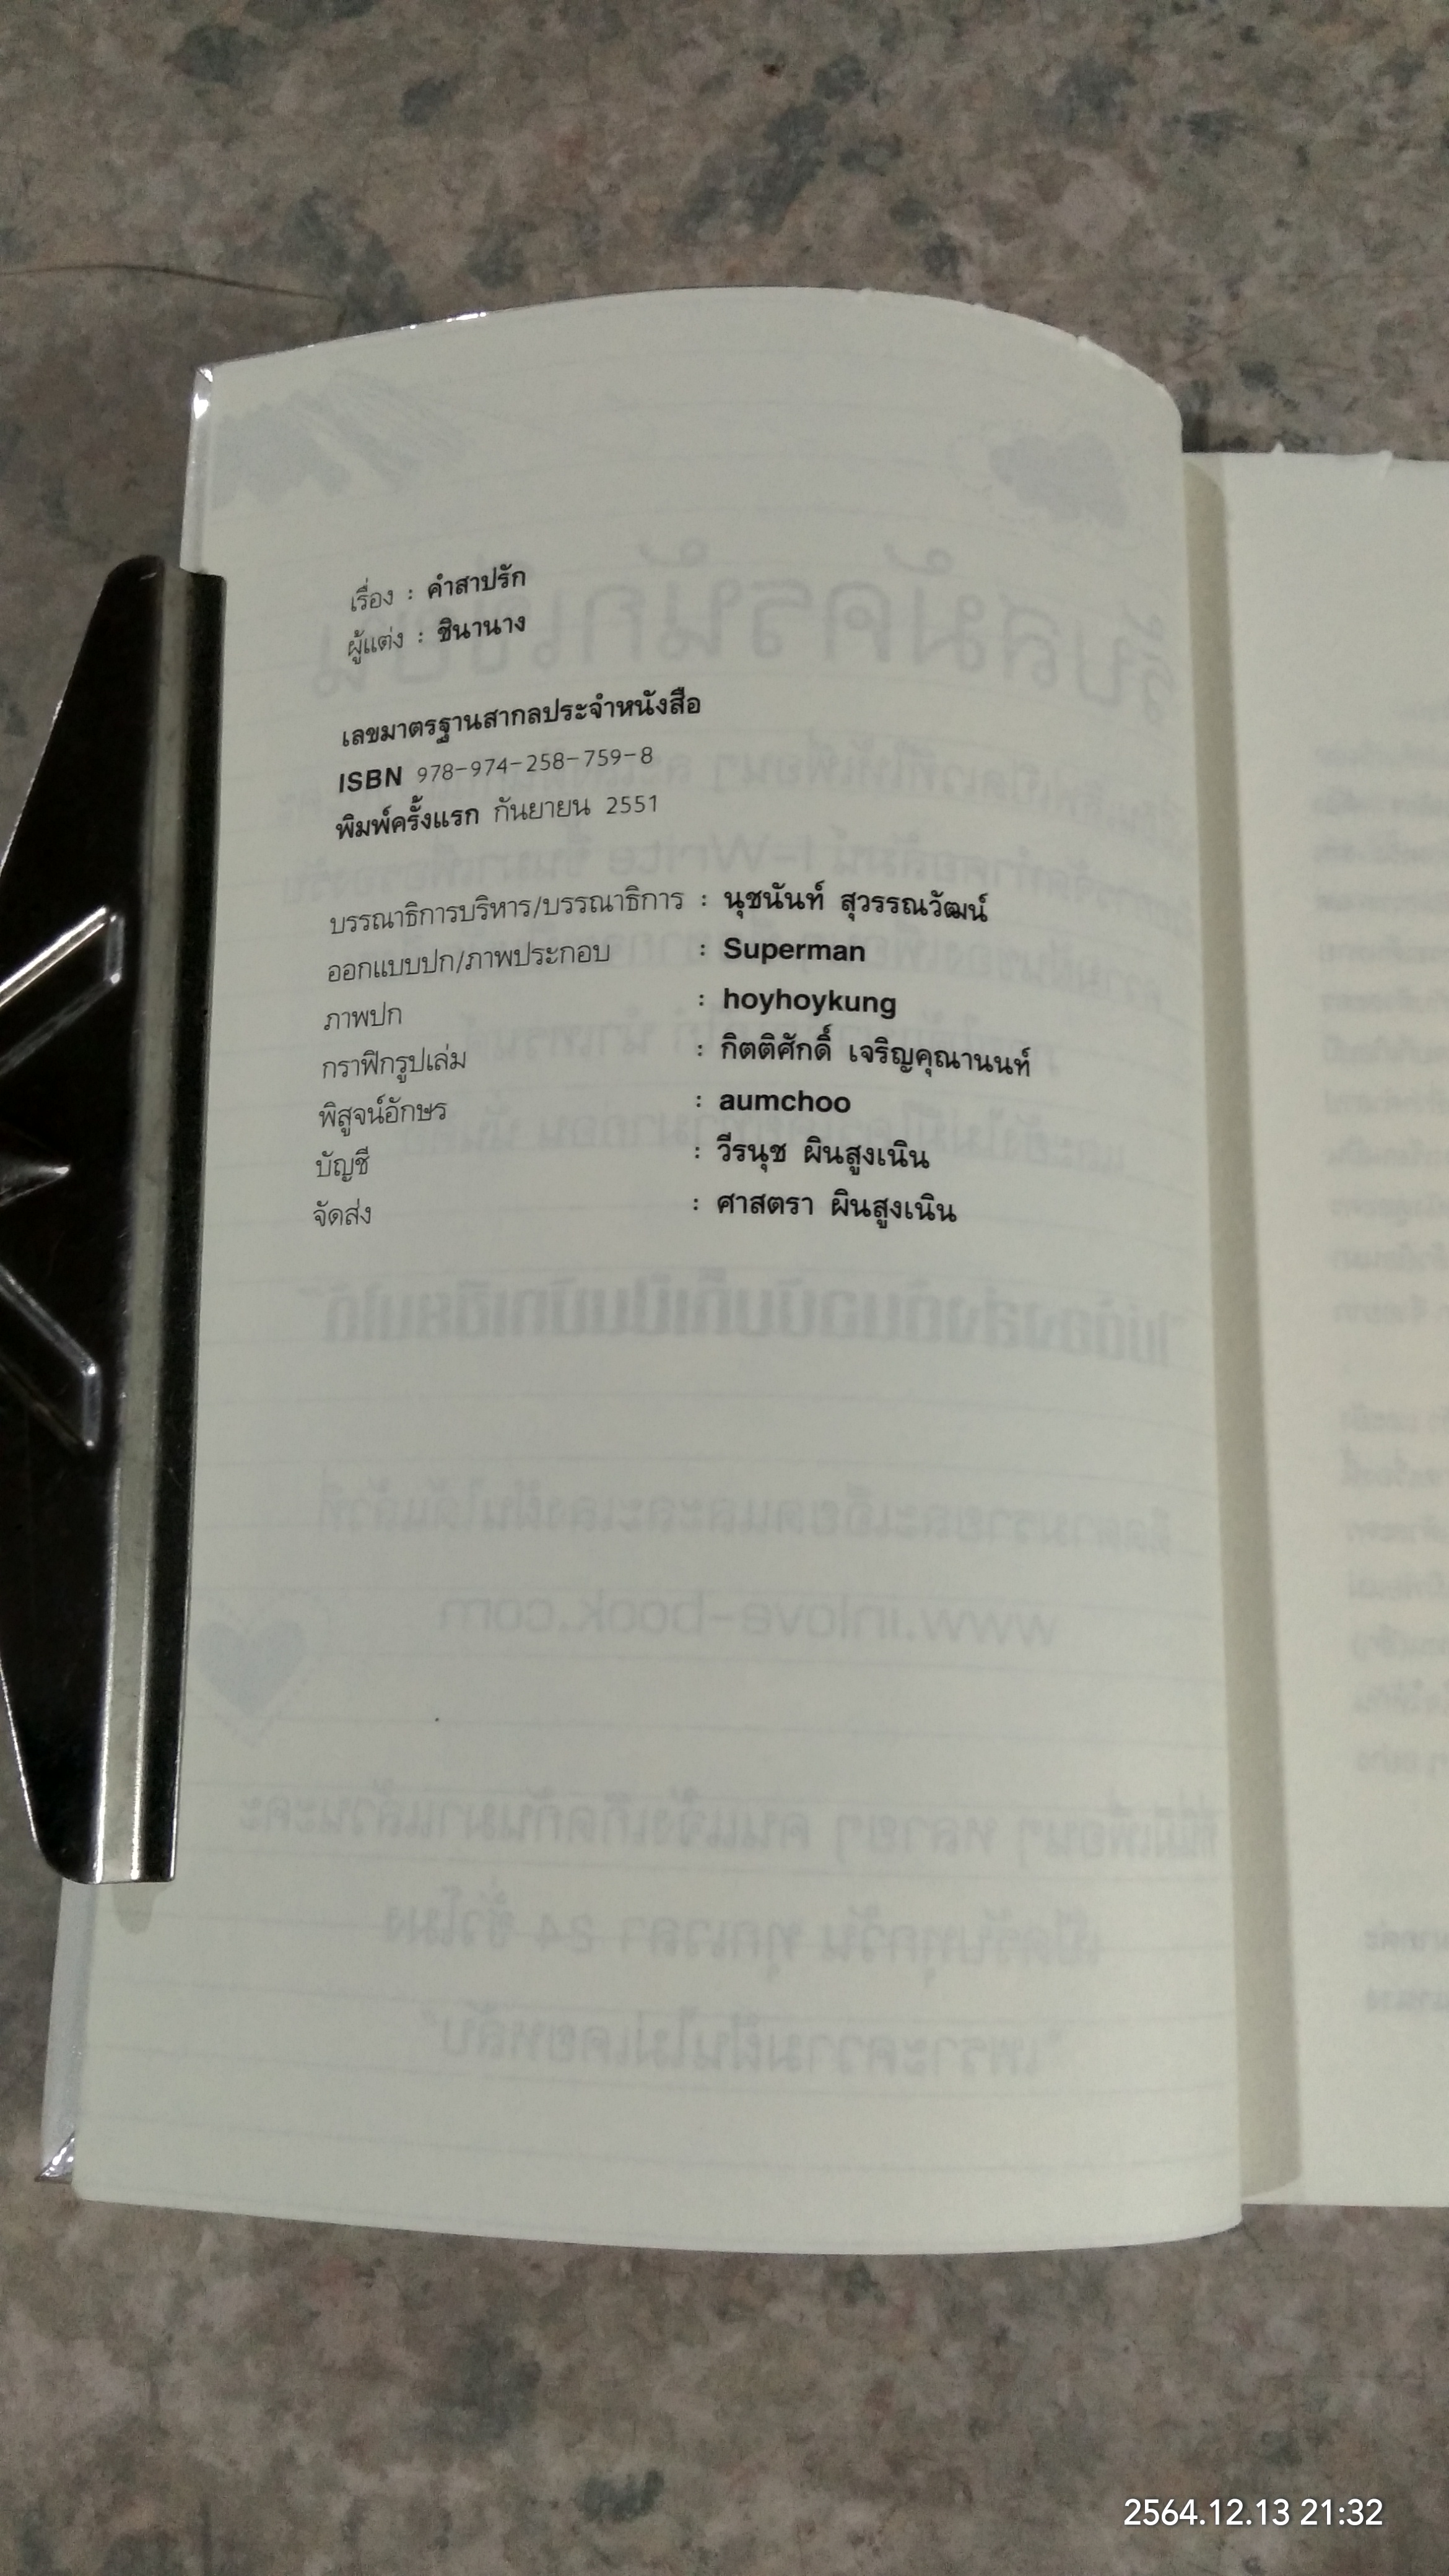 เรื่อง : คำสาปรัก
ผู้แต่ง : ชินานาง
เลขมาตรฐานสากลประจำหนังสือ
ISBN 978-974-258-759-8
พิมพ์ครั้งแรก กันยายน 2551
บรรณาธิการบริหาร/บรรณาธิการ : นุชนันท์ สุวรรณวัฒน์
ออกแบบปก/ภาพประกอบ : Superman
ภาพปก : hoyhoykung
กราฟิกรูปเล่ม : กิตติศักดิ์ เจริญคุณานนท์
พิสูจน์อักษร : aumchoo
บัญชี : วีรนุช ผินสูงเนิน
จัดส่ง : ศาสตรา ผินสูงเนิน
2564.12.13 21:32